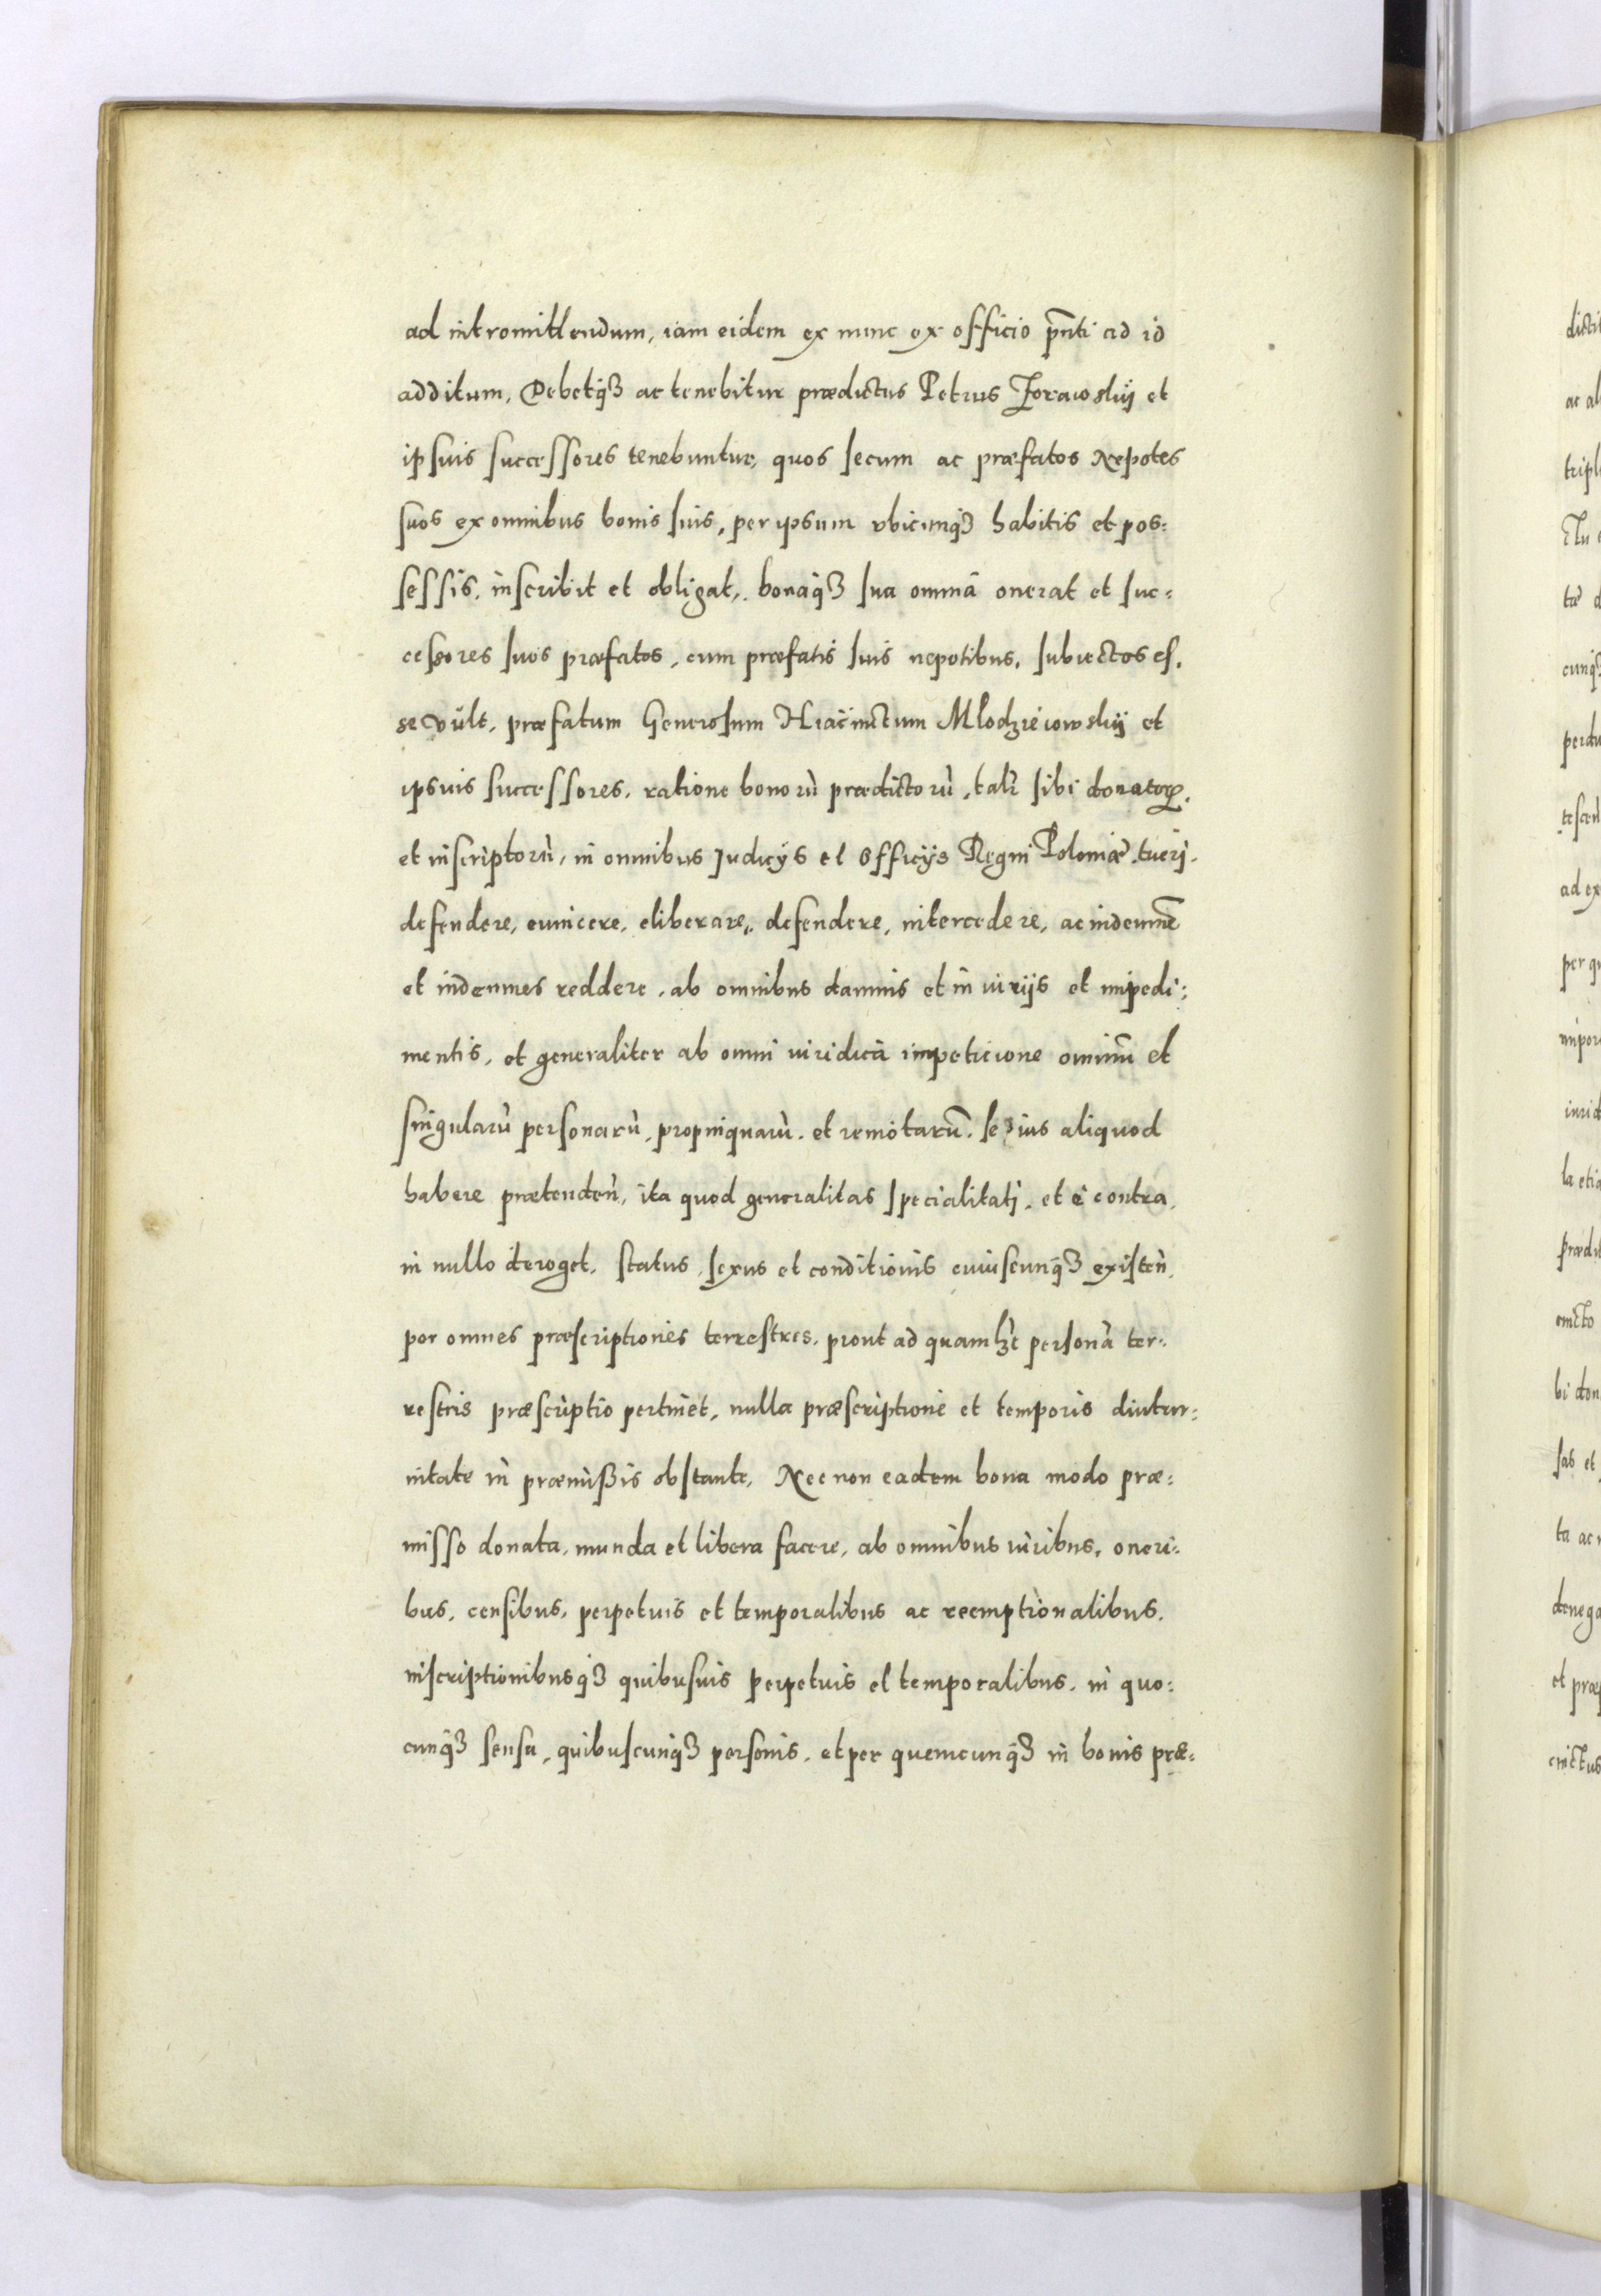 ad intromittendum, iam eidem ex nunc ex officio pñti ad id
additum, Debetqȝ ac tenebitur prædictus Petrus Zorawskij et
ipsuis successores tenebuntur, quos secum ac præfatos Nepotes
suos ex omnibus bonis suis, per ipsum vbicunqȝ habitis et pos:
sessis, inscribit et obligat, bonaqȝ sua omnia onerat et suc:
cessores suos præfatos, cum præfatis suis nepotibus, subiectos es,
se vult, præfatum Generosum Hiacinctum Mlodzieiowskij et
ipsuis successores, ratione bonorù prædictorù, talr sibi donatoꝝ,
et inscriptorù, in omnibus Iudicijs et Officijs Regni Poloniæ tueri,
defendere, euincere, eliberare, defendere, intercedere, ac indemnē
et indemnes reddere, ab omnibus damnis et iniurijs et impedi:
mentis, et generaliter ab omni iuridica impeticione omniũ et
singularù personarù, propinquarù, et remotarũ, se ius aliquod
habere prætendeñ, ita quod generalitas specialitati, et è contra,
in nullo deroget, status, sexus et conditionis cuiuscunqȝ existeñ,
per omnes præscriptiones terrestres, prout ad quamlȝt personã ter:
restris præscriptio pertinet, nulla præscriptione et temporis diutur:
nitate in præmißis obstante, Nec non eadem bona modo præ:
misso donata, munda et libera facere, ab omnibus iuribus, oneri:
bus, censibus, perpetuis et temporalibus ac reemptionalibus,
inscriptionibusqȝ quibusuis perpetuis et temporalibus, in quo:
cunqȝ sensu, quibuscunqȝ personis, et per quemcunqȝ in bonis præ: